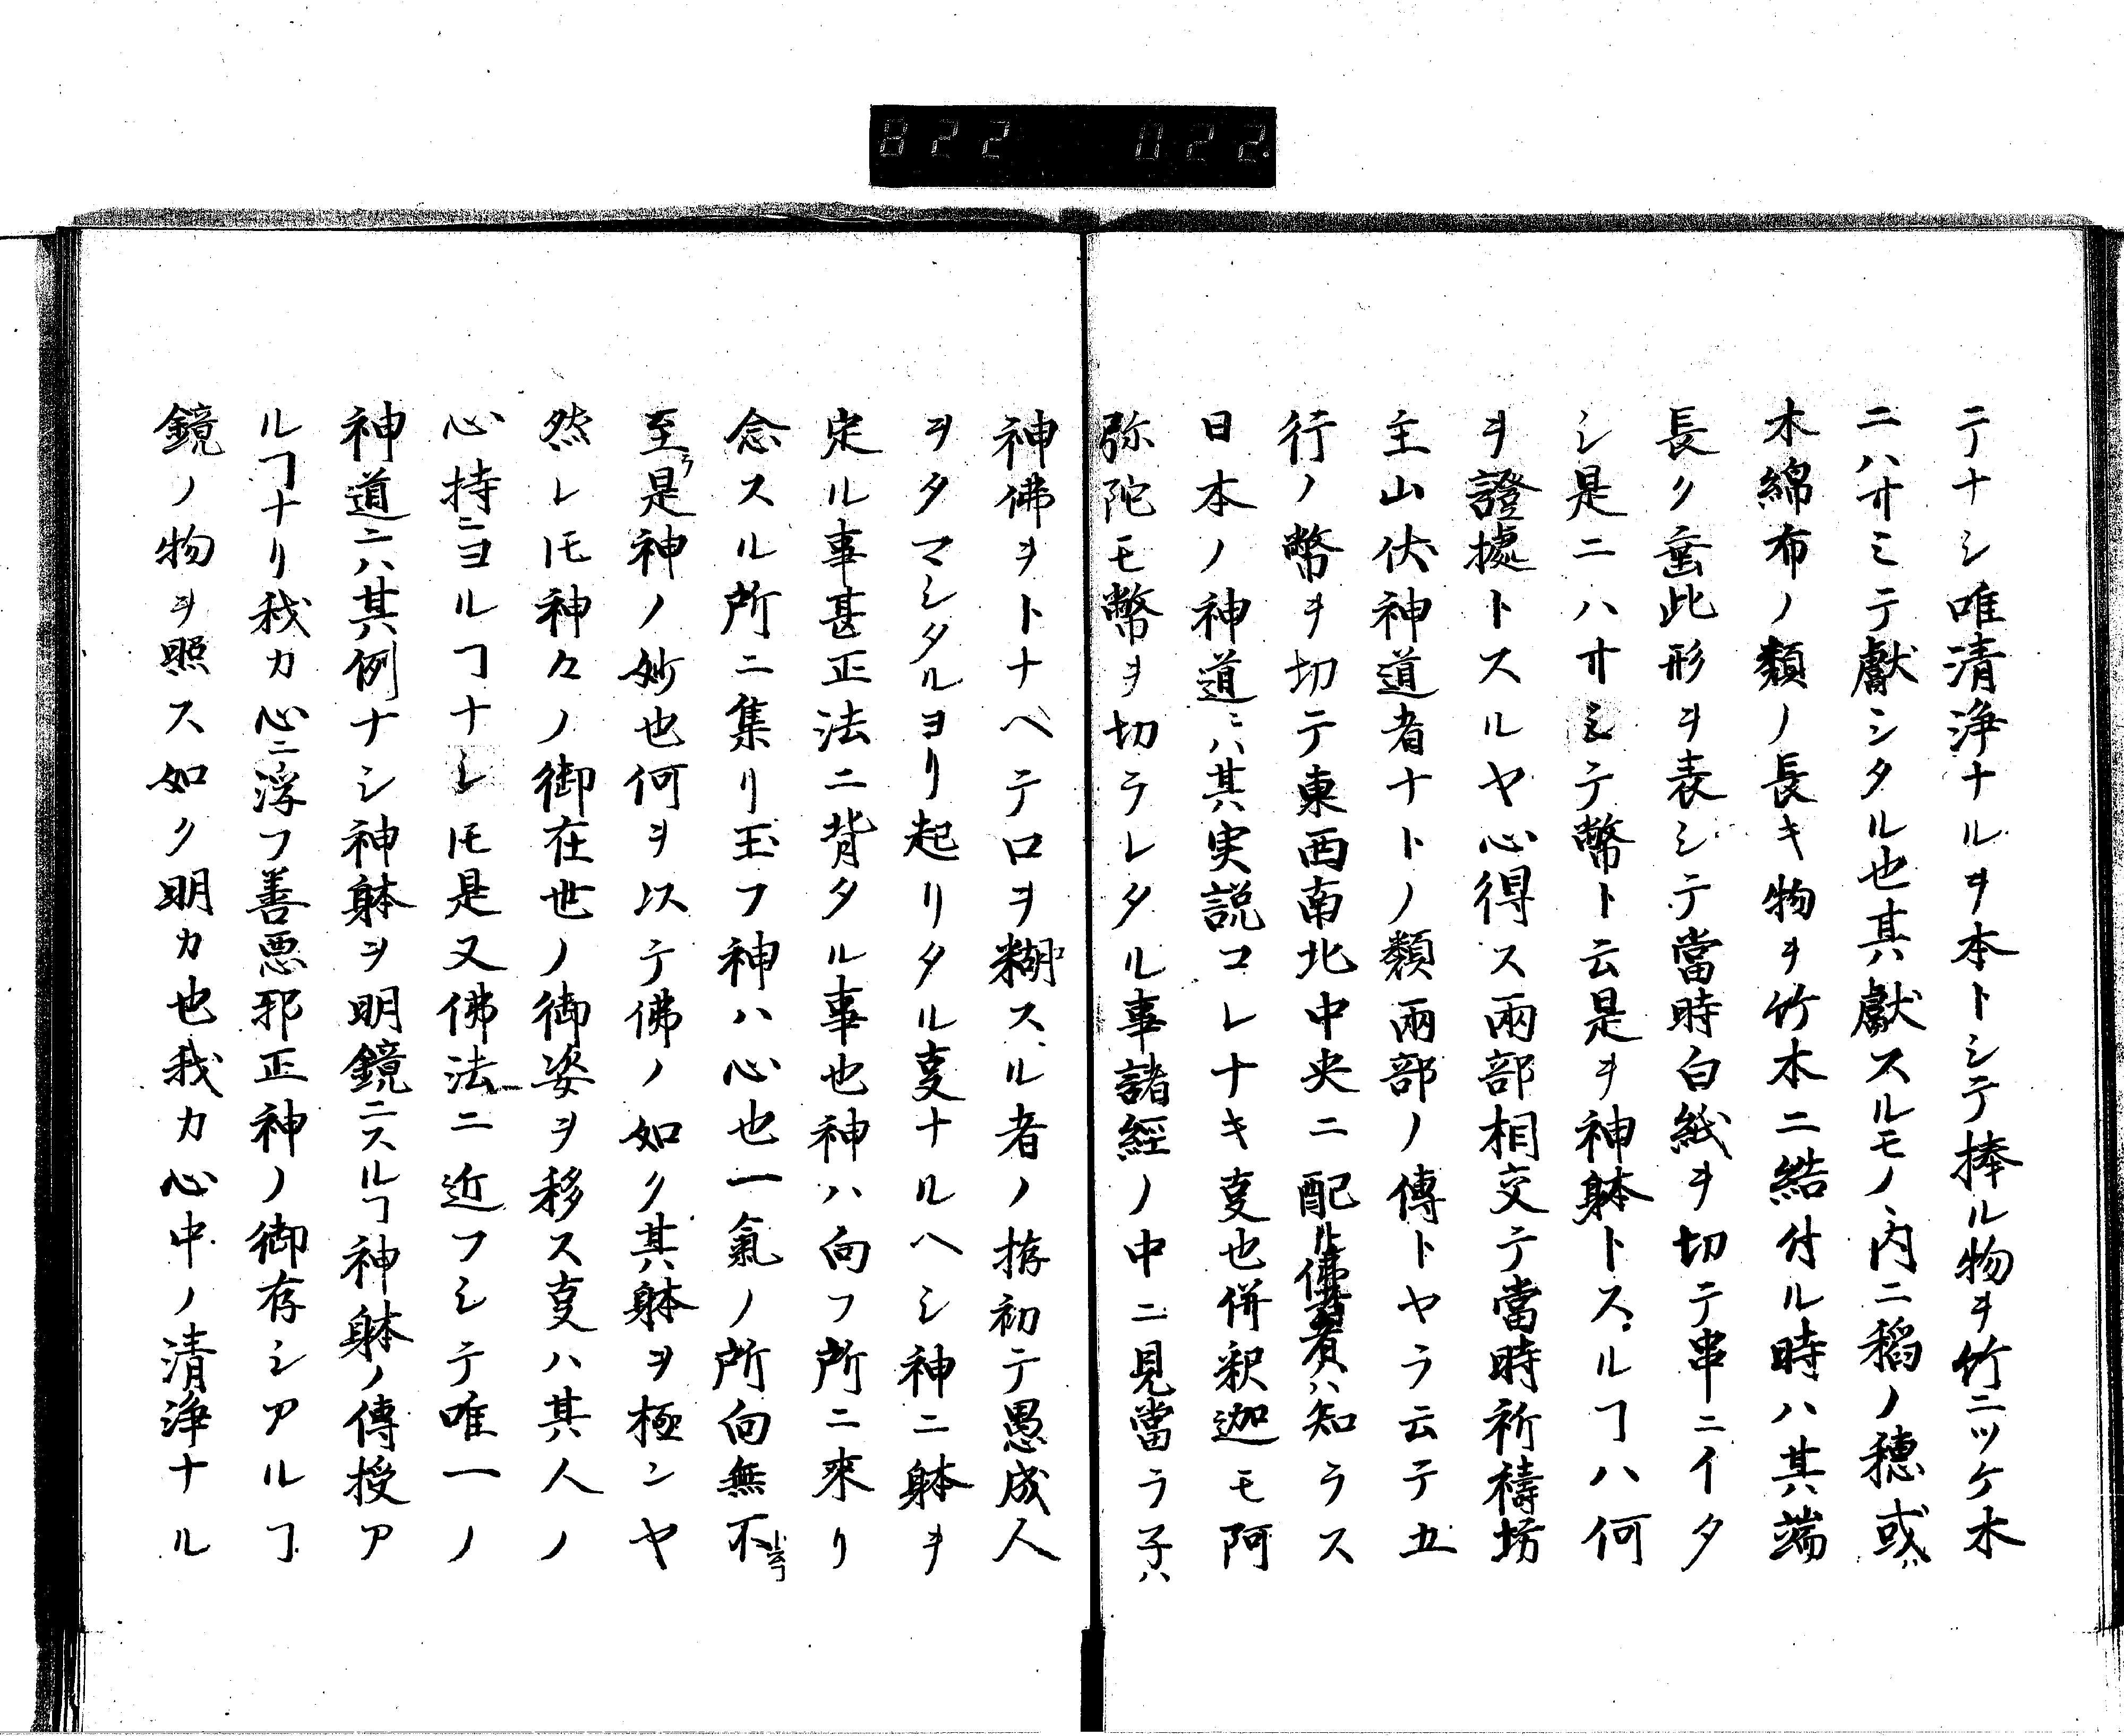 822 022
テナシ唯清浄ナルヲ本トシテ捧ル物ヲ竹ニツケ木
ニハサミテ獻シタル也其獻スルモノヽ内ニ稻ノ穂或ハ
木綿布ノ類ノ長キ物ヲ竹木ニ結付ル時ハ其端
長ク垂此形ヲ表シテ當時白紙ヲ切テ串ニイタ
シ是ニハサミテ幣ト云是ヲ神躰トスルヿハ何
ヲ證據トスルヤ心得ス兩部相交テ當時祈禱坊
主山伏神道者ナトノ類兩部ノ傳トヤラ云テ五
行ノ幣ヲ切テ東西南北中央ニ配ル佛者ハ知ラス
日本ノ神道ニハ其実説コレナキ叓也併釈迦モ阿
弥陀モ幣ヲ切ラレタル事諸經ノ中ニ見當ラ子ハ
神佛ヲトナヘテ口ヲ糊スル者ノ拵初テ愚成人
ヲタマシタルヨリ起リタル叓ナルヘシ神ニ躰ヲ
定ル事甚正法ニ背タル事也神ハ向フ所ニ來リ
念スル所ニ集リ玉フ神ハ心也一氣ノ所向無不
至ラ是神ノ妙也何ヲ以テ佛ノ如ク其躰ヲ極ンヤ
然レ𪜈神々ノ御在世ノ御姿ヲ移ス叓ハ其人ノ
心持ニヨルヿナレ𪜈是又佛法ニ近フシテ唯一ノ
神道ニハ其例ナシ神躰ヲ明鏡ニスルヿ神躰ノ傳授ア
ルヿナリ我カ心ニ浮フ善悪邪正神ノ御存シアルヿ
鏡ノ物ヲ照ス如ク明カ也我カ心中ノ清浄ナル